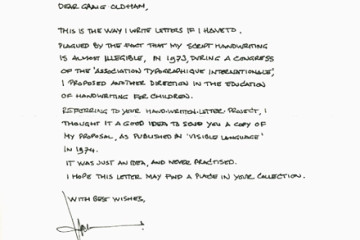 DEAR CRAIG OLDHAM,
THIS IS THE WAY I WRITE LETTERS IF I HAVE TO.
PLAGUED BY THE FACT THAT MY SCRIPT HANDWRITING
IS ALMOST ILLEGIBLE, IN 1973, DURING A CONGRESS
OF THE 'ASSOCIATION TYPOGRAPHIQUE INTERNATIONALE',
I PROPOSED ANOTHER DIRECTION IN THE EDUCATION
OF HANDWRITING FOR CHILDREN.
REFERRING TO YOUR HAND-WRITTEN-LETTER PROJECT, I
THOUGHT IT A GOOD IDEA TO SEND YOU A COPY OF
MY PROPOSAL, AS PUBLISHED IN 'VISIBLE LANGUAGE'
IN 1974.
IT WAS JUST AN IDEA, AND NEVER PRACTISED.
I HOPE THIS LETTER MAY FIND A PLACE IN YOUR COLLECTION.
WITH BEST WISHES,